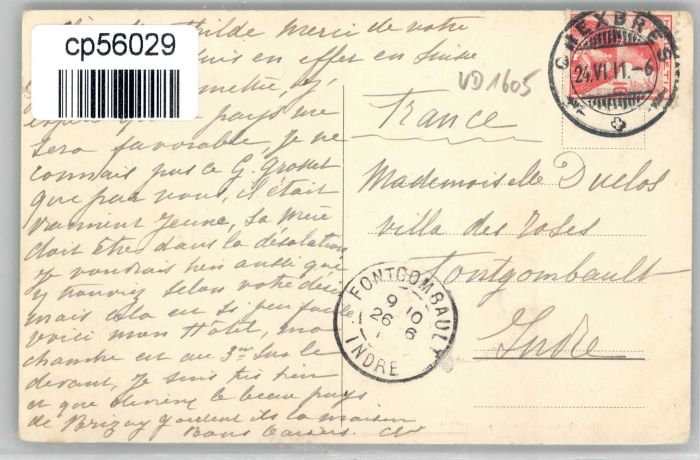 Mathilde merci de votre
suis en effet en Suisse
cp56029
pays me
sera favorable, Je ne
connais pas ce G. Grosset
que par vous, il était
vraiment Jeune, sa mère
doit être dans la désolation
Je voudrais bien aussi que
selon votre désir
mais cela en si peu
voici mon Hôtel, ma
chambre est au 3me sur le
devant, Je suis très bien
et que devient le beau pays
de Brizay gardent ils la maison
Bons baisers.
VD1605
CHEXBRES
24.VI.11.-6
France
Mademoiselle Duclos
villa des roses
Fontgombault
Indre
FONTGOMBAULT
9 10
26 6
INDRE